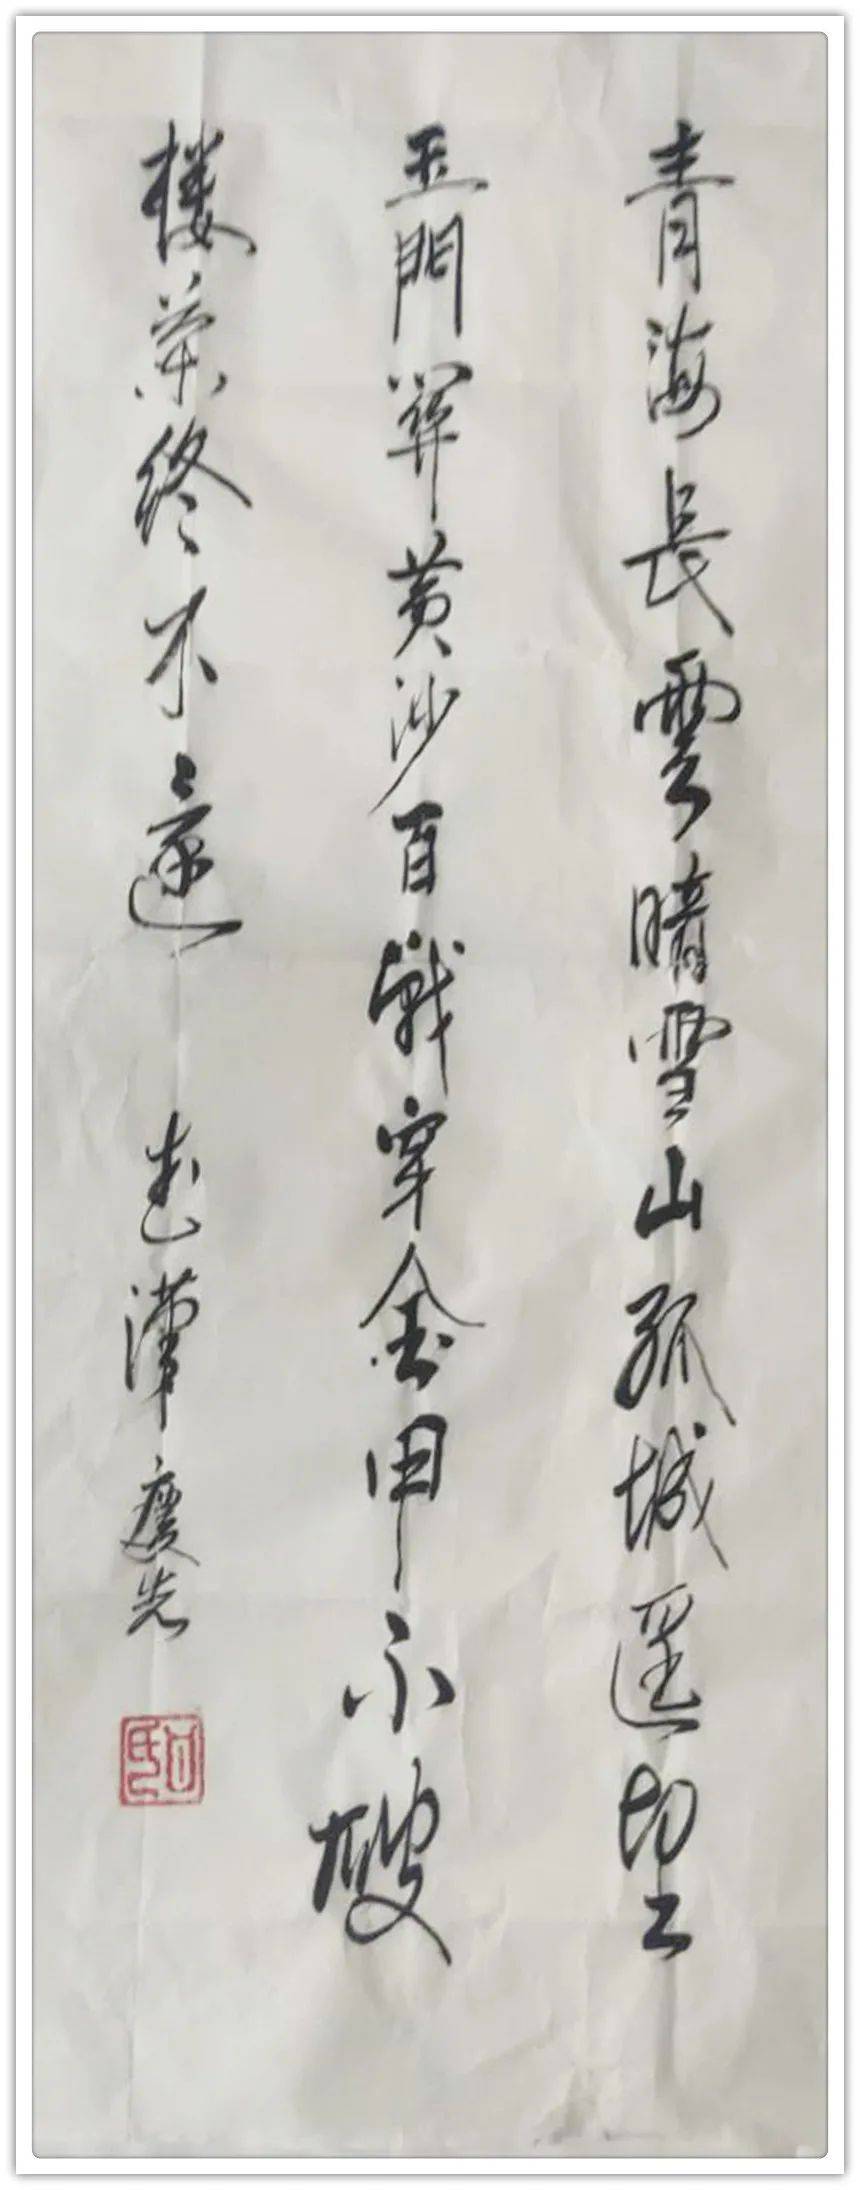 青海長雲暗雪山孤城遥望
玉門關黄沙百戰穿金甲不破
楼蘭终不還 武漢 慶先